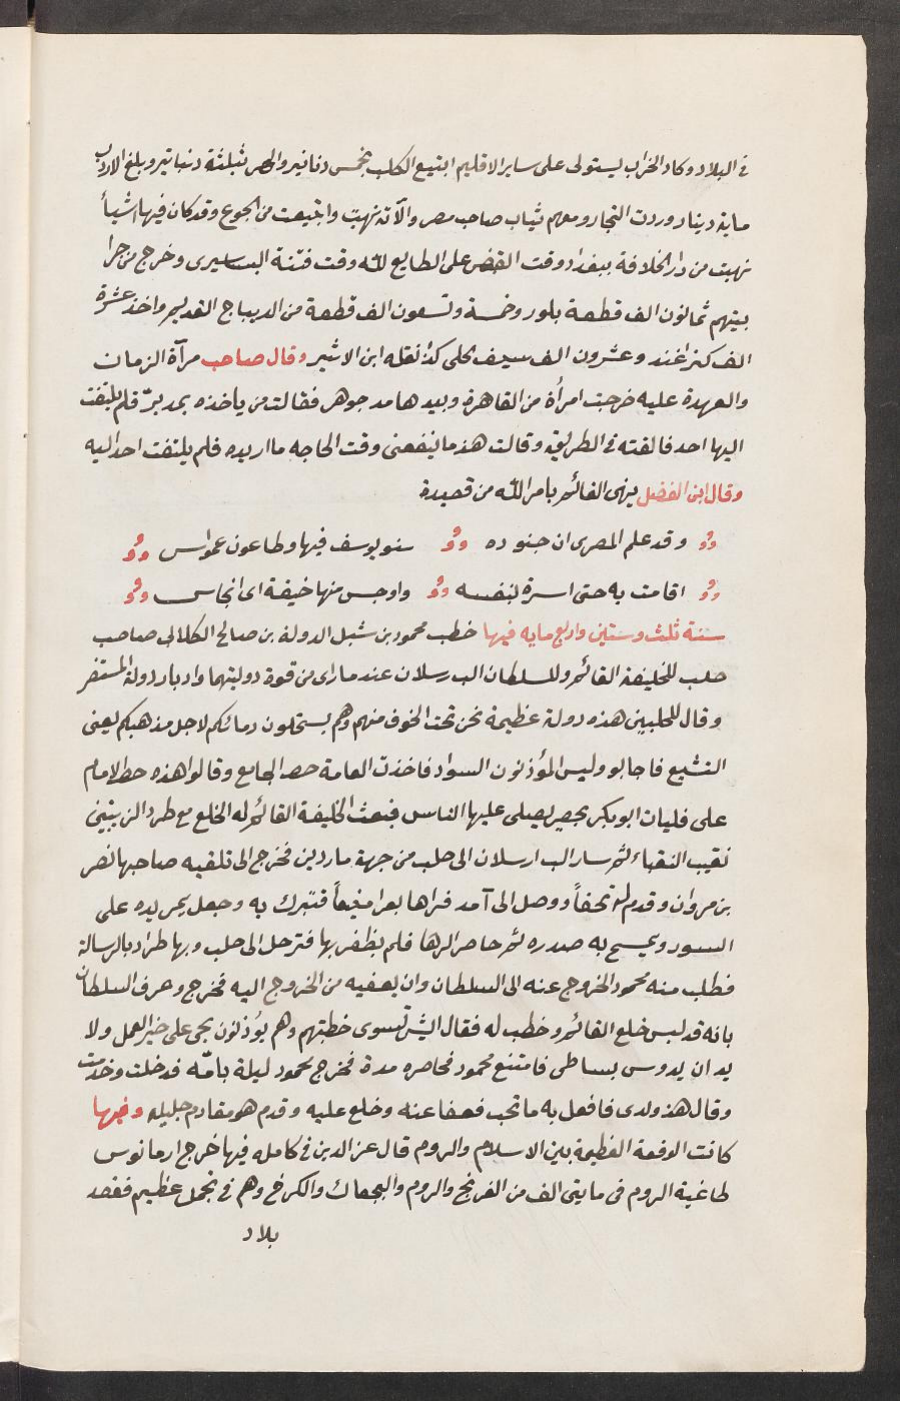 في البلاد وكاد الخراب يستولى على ساير الاقليم ابتيع الكلب بخمس دنانير والهر بثلثة دنانير وبلغ الاردب
ماية دينار وردت التجار ومعهم ثياب صاحب مصر وآلآته نهبت وابتيعت من الجوع وقد كان فيها اشيأ
نهبت من دار الخلافة ببغداد وقت القبض على الطايع لله وقت فتنة البساسيرى وخرج من خزا
ينهم ثمانون الف قطعة بلور وخمسة وتسعون الف قطعة من الديباج القديم واخذ عشرة
الف كزاغند وعشرون الف سيف محلى كذا نقله ابن الاثير وقال صاحب مرآة الزمان
والعهدة عليه خرجت امرأة من القاهرة وبيدها مد جوهر فقالت من ياخذه بمد برّ فلم يلتفت
اليها احد فالقته في الطريق وقالت هذ ما ينفعنى وقت الحاجه ما اريده فلم يلتفت احد اليه
وقال ابن الفضل يهنى القائم بامر الله من قصيدة
وقد علم المصرى ان جنوده سنو يوسف فيها وطاعون عمواس
اقامت به حتى استرة لنفسه واوجس منها خيفة اى انجاس
سنة ثلث وستين واربع مايه فيها خطب محمود بن شبل الدولة بن صالح الكلالى صاحب
حلب للخليفة القائم وللسلطان الب رسلان عند ما راى من قوة دولتهما وادبار دولة المستنصر
وقال للحلبيين هذه دولة عظيمة نحن تحت الخوف منهم وهم يستحلون دمائكم لاجل مذهبكم يعنى
التشيع فاجابو ولبس المؤذنون السواد فاخذت العامة حصر الجامع وقالوا هذه حصر الامام
على فليات ابو بكر بحصر يصلى عليها الناس فبعث الخليفة القائم له الخلع مع طرد الزينبي
نقيب النقباء ثم سار الب ارسلان الى حلب من جهة ماردين فخرج الى تلقيه صاحبها نصر
بن مروان وقدم له تحفاً ووصل الى آمد فراها ثغرا منيعاً فتبرك به وجعل يمر يده على
السور ويمسح به صدره ثم حاصر الرها فلم يظفر بها فترحل الى حلب وبها طراد بالرسالة
فطلب منه محمود الخروج عنه الى السلطان وان يعفيه من الخروج اليه فخرج وعرف السلطان
بانه قد لبس خلع القائم وخطب له فقال ايش تسوى خطبتهم وهم يؤذنون بحى على خير العمل ولا
بد ان يدوس بساطى فامتنع محمود فحاصره مدة فخرج محمود ليلة بامّه فدخلت وخدمت
وقال هذ ولدى فافعل به ما تحب فعفا عنه وخلع عليه وقدم هو مقادم جليله وفيها
كانت الوقعة العظيمة بين الاسلام والروم قال عز الدين في كامله فيها خرج ارمانوس
طاغية الروم فى مايتى الف من الفرنج والروم والبجعاك والكرخ وهم في تجمل عظيم فقصد
بلاد